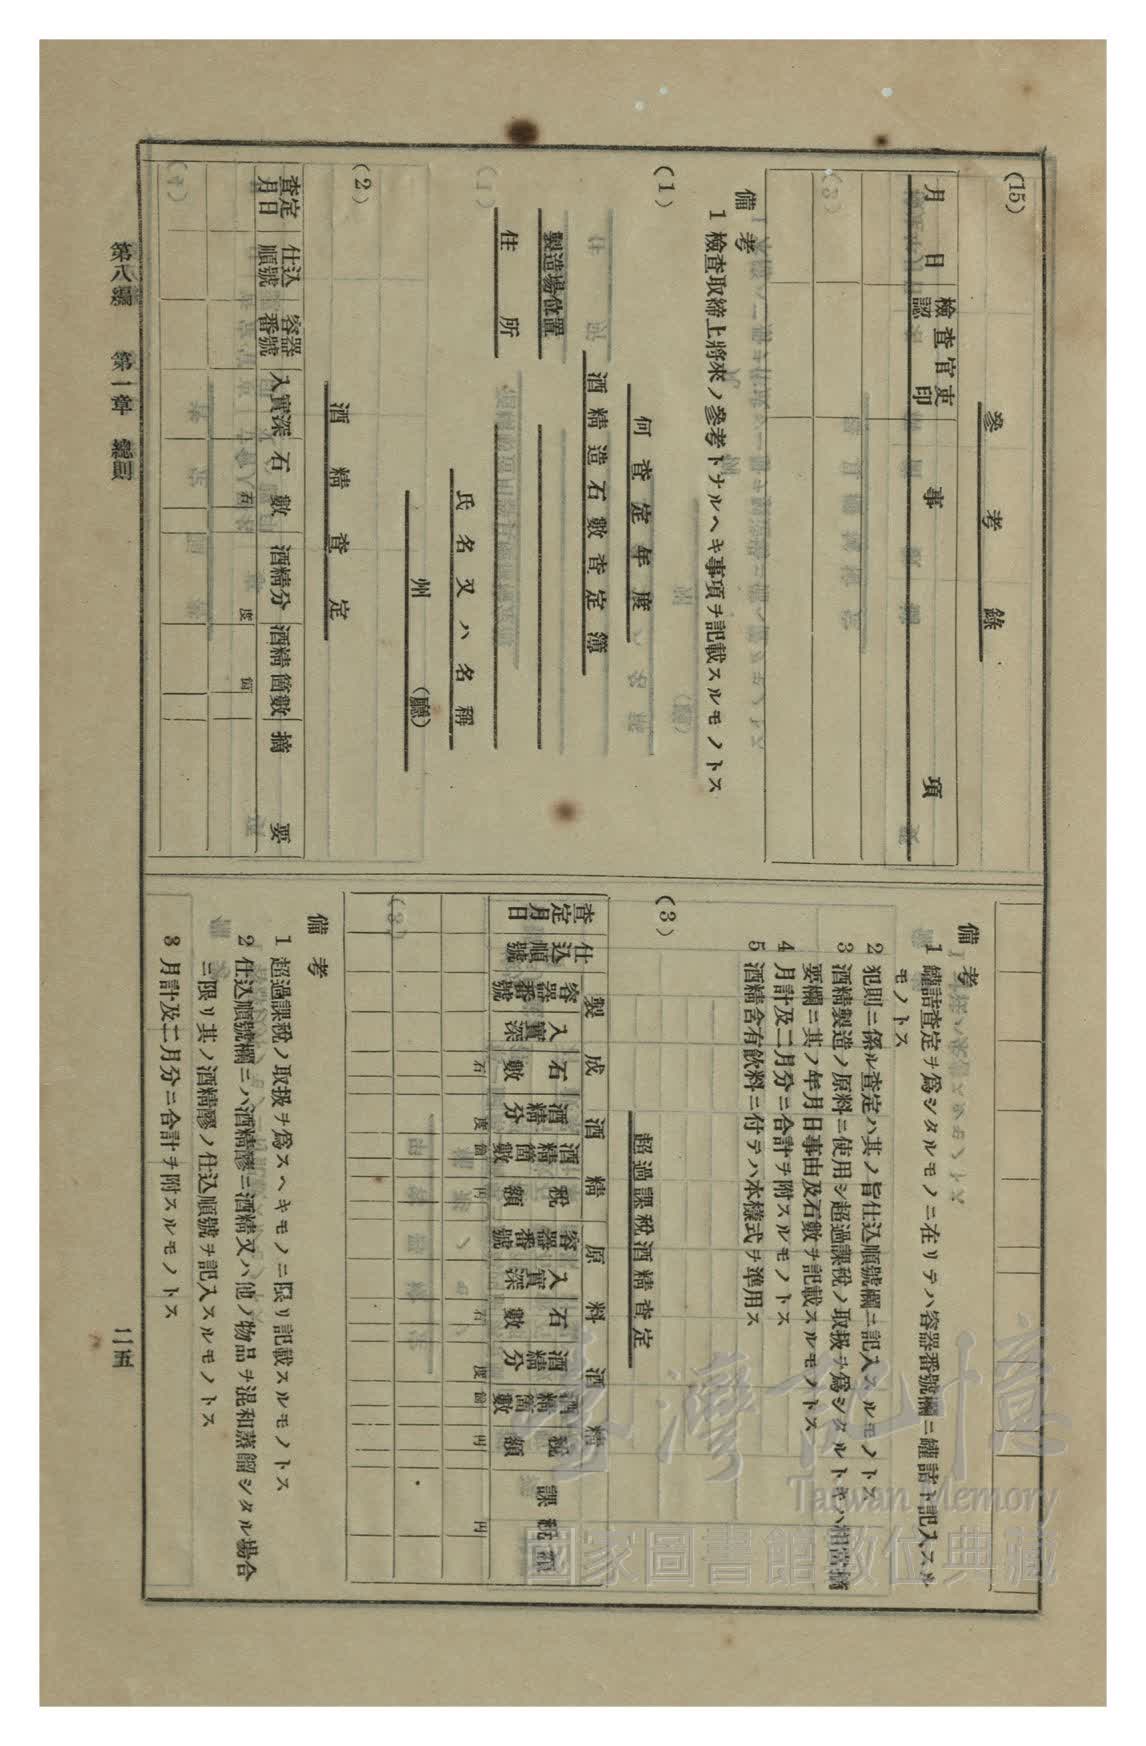 (15)
參考錄
月日
檢查官吏認印
事項
備考
1 檢查取締上將來ノ參考トナルヘキ事項ヲ記載スルモノトス
(1)
何查定年度
酒精造石數查定簿
製造場位置
住所
氏名又ハ名稱
州(廳)
(2)
酒精查定
查定月日
仕込順號
容器番號
入實深
石數
酒精分
酒精箇數
摘要
石
度
箇
備考
1 罐詰查定ヲ爲シタルモノニ在リテハ容器番號欄ニ罐詰ト記入スル
モノトス
2 犯則ニ係ル查定ハ其ノ旨仕込順號欄ニ記入スルモノトス
3 酒精製造ノ原料ニ使用シ超過課稅ノ取扱ヲ爲シタルトキハ相當摘
要欄ニ其ノ年月日事由及石數ヲ記載スルモノトス
4 月計及二月分ニ合計ヲ附スルモノトス
5 酒精含有飲料ニ付テハ本樣式ヲ準用ス
(3)
超過課稅酒精查定
查定月日
仕込順號
製成酒精
容器番號
入實深
石數
酒精分
酒精箇數
稅額
原料酒精
容器番號
入實深
石數
酒精分
酒精箇數
稅額
課稅額
石
度
箇
円
石
度
箇
円
円
備考
1 超過課稅ノ取扱ヲ爲スヘキモノニ限リ記載スルモノトス
2 仕込順號欄ニハ酒精醪ニ酒精又ハ他ノ物品ヲ混和蒸餾シタル場合
ニ限リ其ノ酒精醪ノ仕込順號ヲ記入スルモノトス
3 月計及二月分ニ合計ヲ附スルモノトス
臺灣記憶
Taiwan Memory
國家圖書館數位典藏